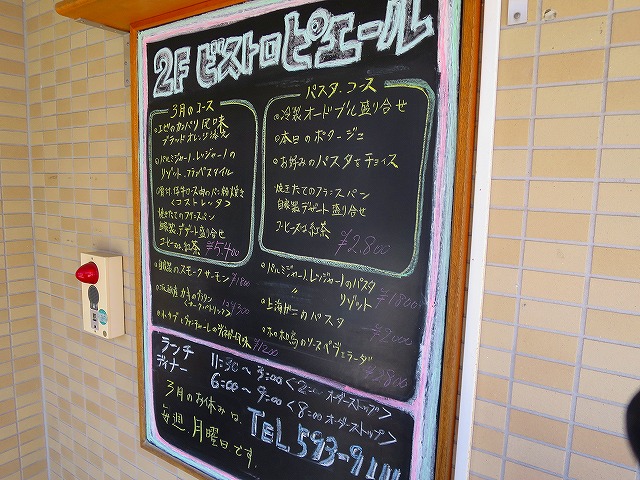 2F ビストロピエール
3月のコース
・エビのカンパリ風味
ブラッドオレンジ
・パルミジャーノ.レッジャーノの
リゾット,
パン粉焼き
<コストレッタ>
焼きたてのフランスパン
自家製デザート盛り合せ
コーヒーor紅茶 ¥5.400
パスタ.コース
・冷製オードブル盛り合せ
・本日のポタージュ
・お好みのパスタをチョイス
焼きたてのフランスパン
自家製デザート盛り合せ
コーヒーor紅茶
¥2.800
・自家製のスモークサーモン ¥1800
・パルミジャーノ.レッジャーノのパスタ
〃 リゾット ¥1800
・上海ガニのパスタ
¥2000
¥2800
ランチ 11:30〜3:00<2:00オーダーストップ>
ディナー 6:00〜9:00<8:00オーダーストップ>
3月のお休みは、
毎週月曜日です.
TEL 593-9111